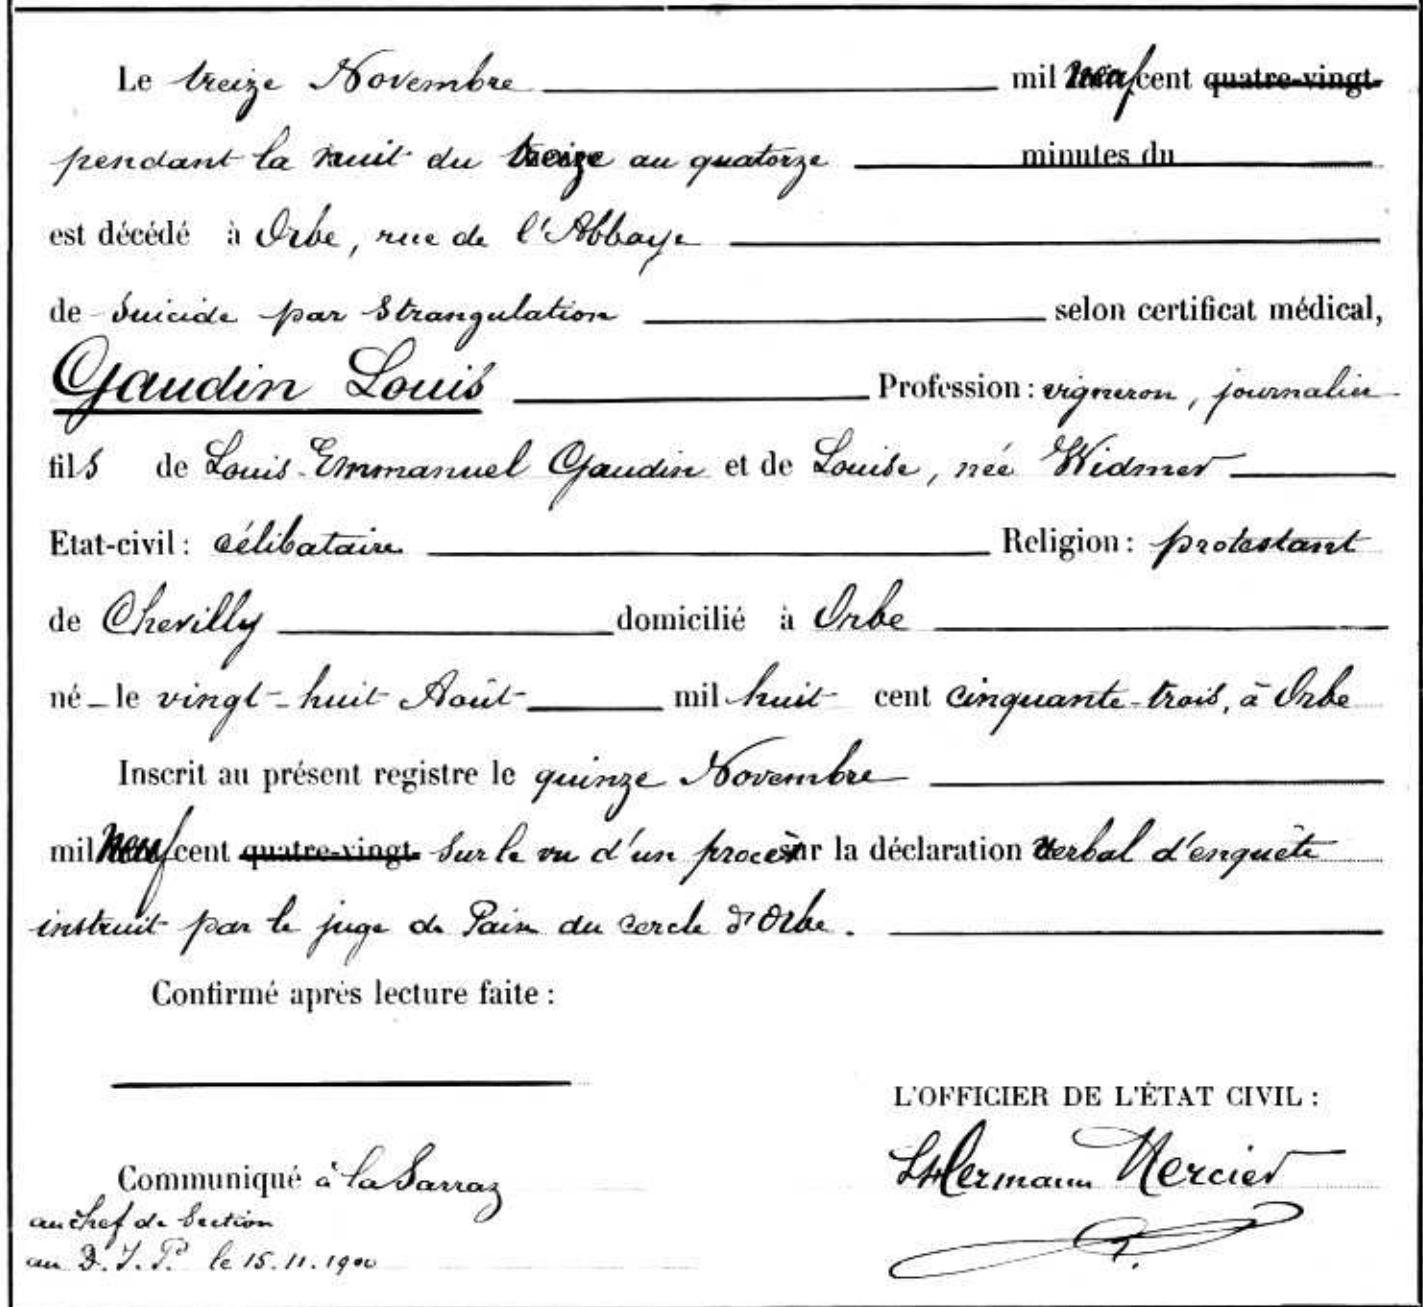 Le treize Novembre mil neuf cent quatre-vingt
pendant la nuit du treize au quatorze minutes du
est décédé à Orbe, rue de l'Abbaye
de suicide par strangulation selon certificat médical,
Gaudin Louis Profession : vigneron, journalier
fils de Louis-Emmanuel Gaudin et de Louise, née Widmer
Etat-civil : célibataire Religion : protestant
de Chevilly domicilié à Orbe
né le vingt-huit Août mil huit cent cinquante-trois, à Orbe
Inscrit au présent registre le quinze Novembre
mil neuf cent quatre-vingt sur le vu d'un procès sur la déclaration verbal d'enquête
instruit par le juge de Paix du cercle d'Orbe.
Confirmé après lecture faite :
L'OFFICIER DE L'ÉTAT CIVIL :
Hermann Mercier
Communiqué à la Sarraz
au chef de Section
au D.J.P. le 15.11.1900